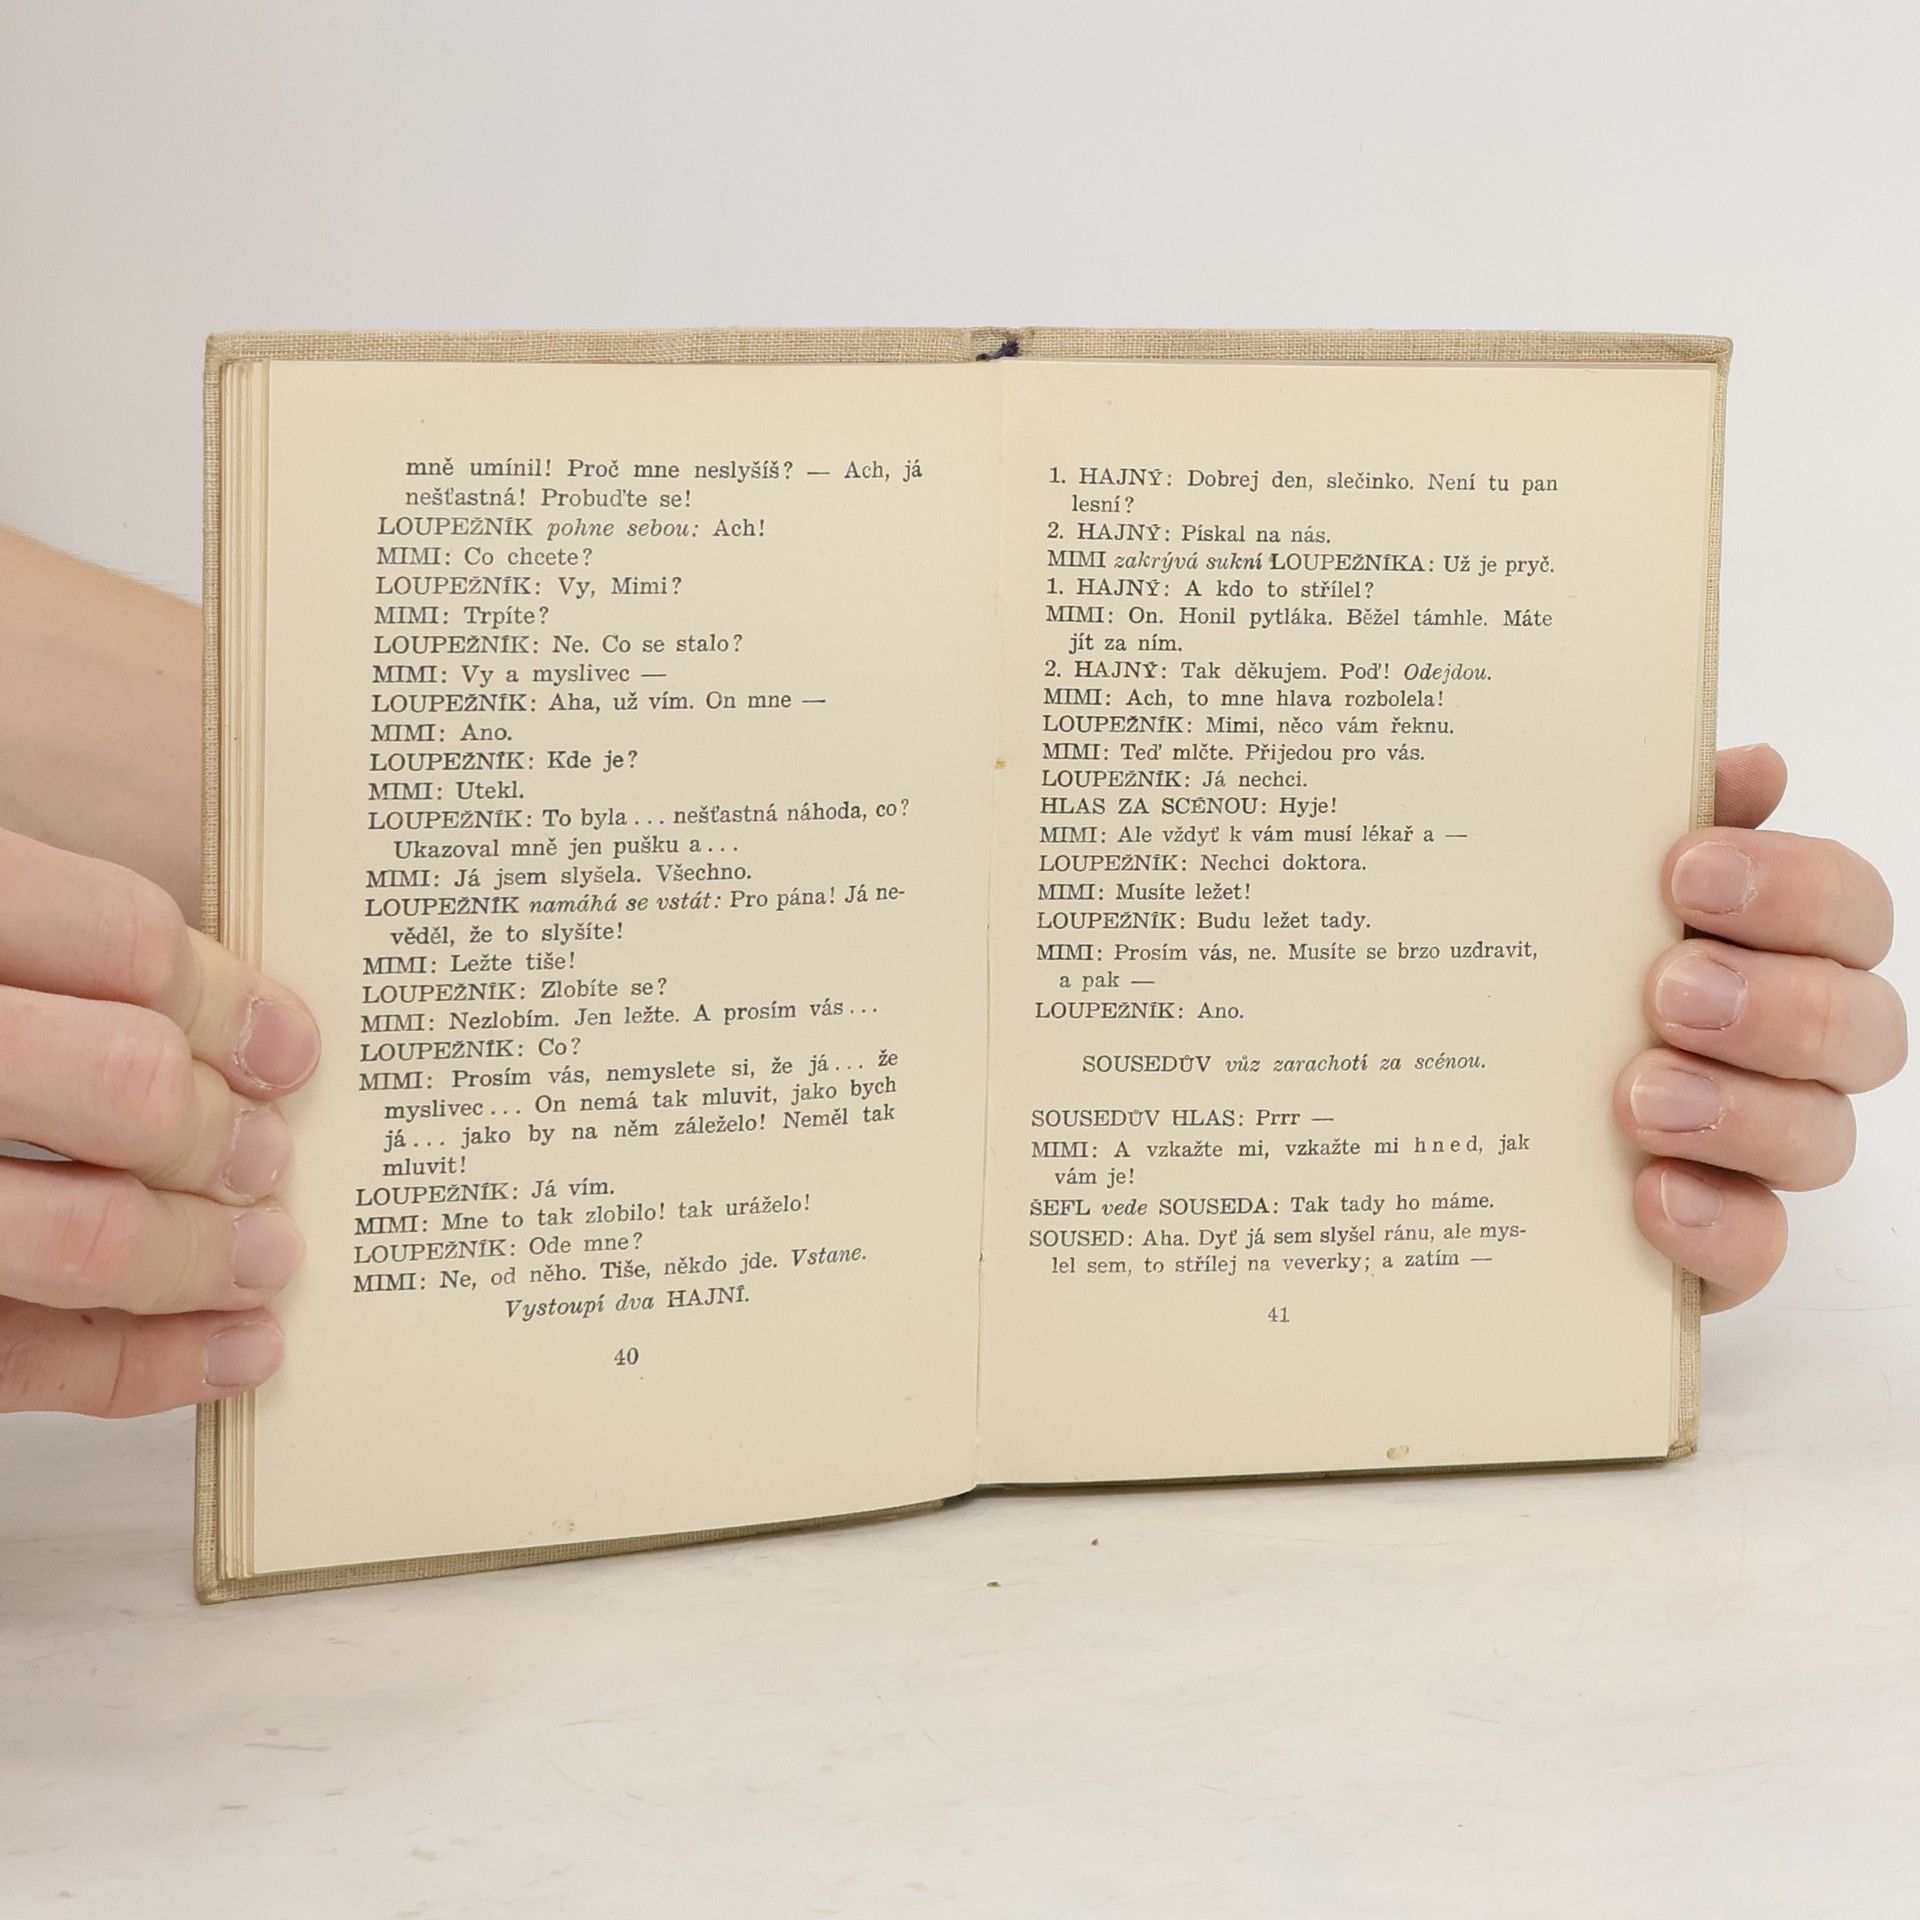 mně umínil! Proč mne neslyšíš? — Ach, já
nešťastná! Probuďte se!
LOUPEŽNÍK pohne sebou: Ach!
MIMI: Co chcete?
LOUPEŽNÍK: Vy, Mimi?
MIMI: Trpíte?
LOUPEŽNÍK: Ne. Co se stalo?
MIMI: Vy a myslivec —
LOUPEŽNÍK: Aha, už vím. On mne —
MIMI: Ano.
LOUPEŽNÍK: Kde je?
MIMI: Utekl.
LOUPEŽNÍK: To byla... nešťastná náhoda, co?
Ukazoval mně jen pušku a...
MIMI: Já jsem slyšela. Všechno.
LOUPEŽNÍK namáhá se vstát: Pro pána! Já ne-
věděl, že to slyšíte!
MIMI: Ležte tiše!
LOUPEŽNÍK: Zlobíte se?
MIMI: Nezlobím. Jen ležte. A prosím vás...
LOUPEŽNÍK: Co?
MIMI: Prosím vás, nemyslete si, že já... že
myslivec... On nemá tak mluvit, jako bych
já... jako by na něm záleželo! Neměl tak
mluvit!
LOUPEŽNÍK: Já vím.
MIMI: Mne to tak zlobilo! tak uráželo!
LOUPEŽNÍK: Ode mne?
MIMI: Ne, od něho. Tiše, někdo jde. Vstane.
Vystoupí dva HAJNÍ.
40
1. HAJNÝ: Dobrej den, slečinko. Není tu pan
lesní?
2. HAJNÝ: Pískal na nás.
MIMI zakrývá sukní LOUPEŽNÍKA: Už je pryč.
1. HAJNÝ: A kdo to střílel?
MIMI: On. Honil pytláka. Běžel támhle. Máte
jít za ním.
2. HAJNÝ: Tak děkujem. Poď! Odejdou.
MIMI: Ach, to mne hlava rozbolela!
LOUPEŽNÍK: Mimi, něco vám řeknu.
MIMI: Teď mlčte. Přijedou pro vás.
LOUPEŽNÍK: Já nechci.
HLAS ZA SCÉNOU: Hyje!
MIMI: Ale vždyť k vám musí lékař a —
LOUPEŽNÍK: Nechci doktora.
MIMI: Musíte ležet!
LOUPEŽNÍK: Budu ležet tady.
MIMI: Prosím vás, ne. Musíte se brzo uzdravit,
a pak —
LOUPEŽNÍK: Ano.
SOUSEDŮV vůz zarachotí za scénou.
SOUSEDŮV HLAS: Prrr —
MIMI: A vzkažte mi, vzkažte mi hned, jak
vám je!
ŠEFL vede SOUSEDA: Tak tady ho máme.
SOUSED: Aha. Dyť já sem slyšel ránu, ale mys-
lel sem, to střílej na veverky; a zatím —
41